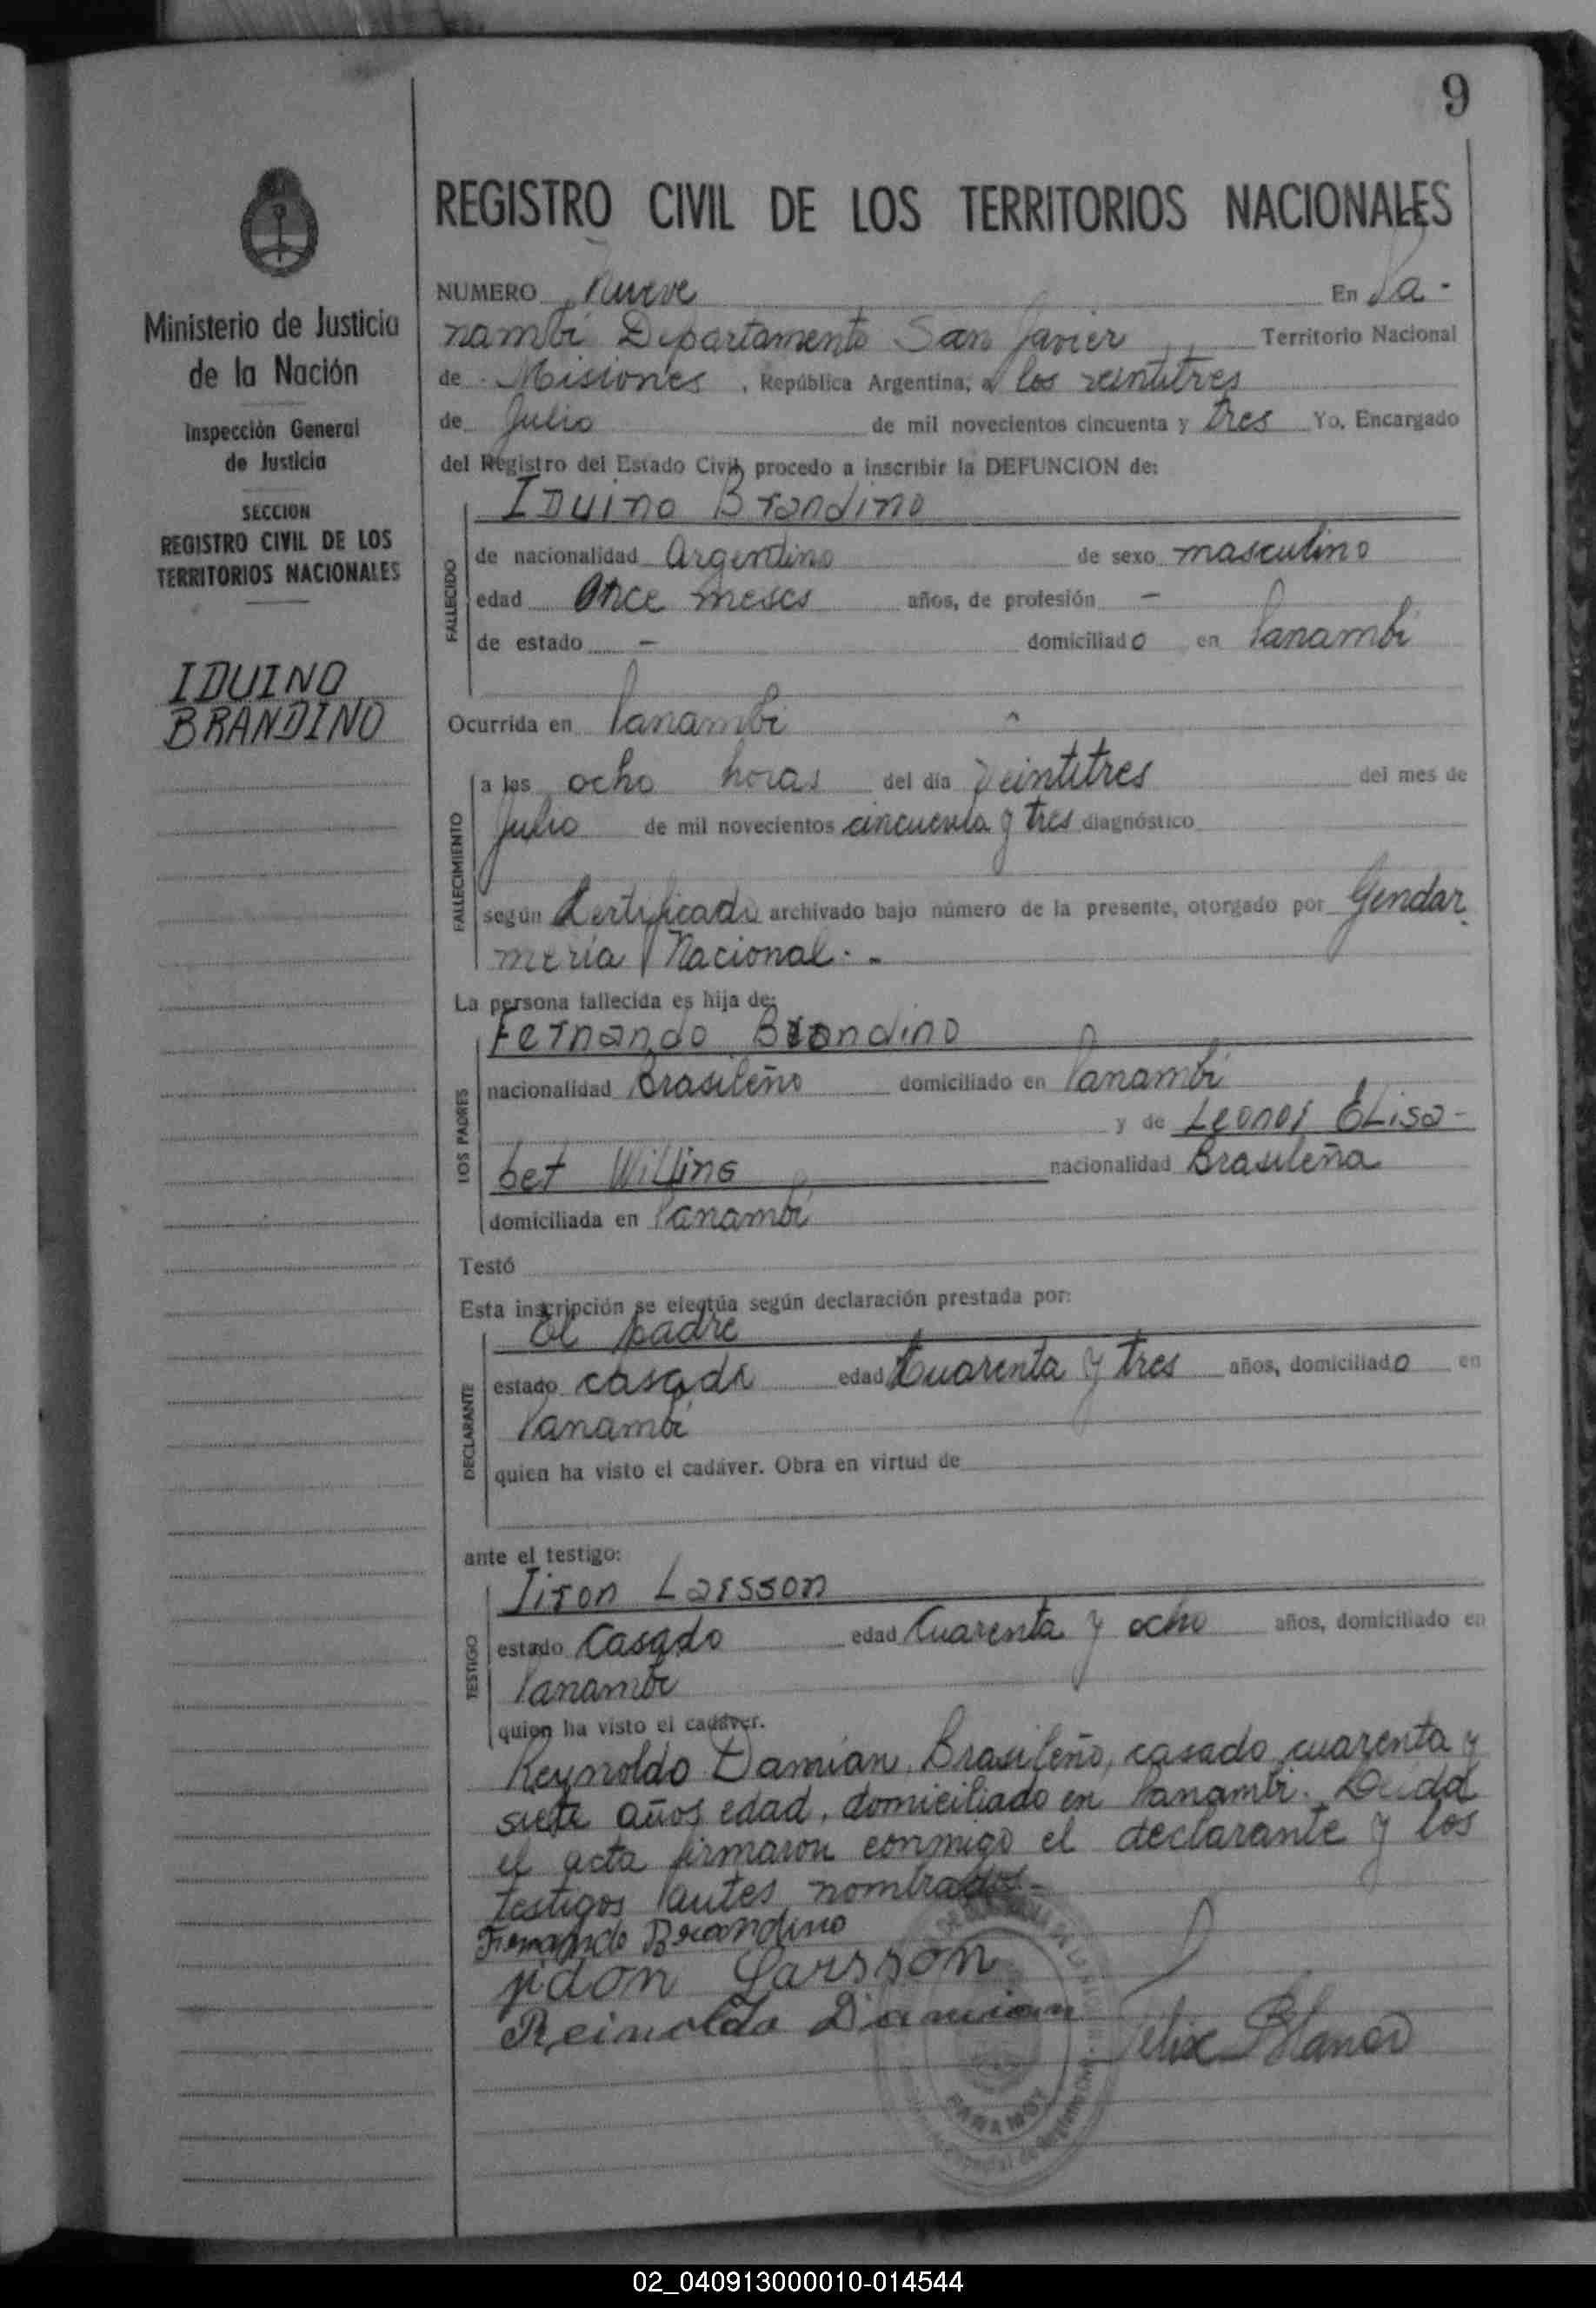 9
REGISTRO CIVIL DE LOS TERRITORIOS NACIONALES
Ministerio de Justicia
de la Nación
Inspección General
de Justicia
SECCION
REGISTRO CIVIL DE LOS
TERRITORIOS NACIONALES
IDUINO
BRANDINO
NUMERO Nueve En Pa-
nambi Departamento San Javier Territorio Nacional
de Misiones, República Argentina, a los veintitres
de Julio de mil novecientos cincuenta y tres Yo, Encargado
del Registro del Estado Civil, procedo a inscribir la DEFUNCION de:
FALLECIDO
IDuino Brandino
de nacionalidad Argentino de sexo masculino
edad Once meses años, de profesión -
de estado - domiciliado en Panambi
Ocurrida en Panambi
FALLECIMIENTO
a las ocho horas del día veintitres del mes de
Julio de mil novecientos cincuenta y tres diagnóstico
según Certificado archivado bajo número de la presente, otorgado por Gendar
meria Nacional.-
La persona fallecida es hija de:
LOS PADRES
Fernando Brandino
nacionalidad Brasileño domiciliado en Panambi
y de Leonor Elisa-
bet Willing nacionalidad Brasileña
domiciliada en Panambi
Testó
Esta inscripción se efectúa según declaración prestada por:
DECLARANTE
El padre
estado casado edad Cuarenta y tres años, domiciliado en
Panambi
quien ha visto el cadáver. Obra en virtud de
ante el testigo:
TESTIGO
Larsson
estado Casado edad Cuarenta y ocho años, domiciliado en
Panambi
quien ha visto el cadáver.
Reynoldo Damian, Brasileño, casado, cuarenta y
siete años edad, domiciliado en Panambi. Leida
el acta firmaron conmigo el declarante y los
testigos antes nombrados.-
Fernando Brandino
Larsson
Reinoldo Damian
Felix Blanco
PANAMBI
02_040913000010-014544